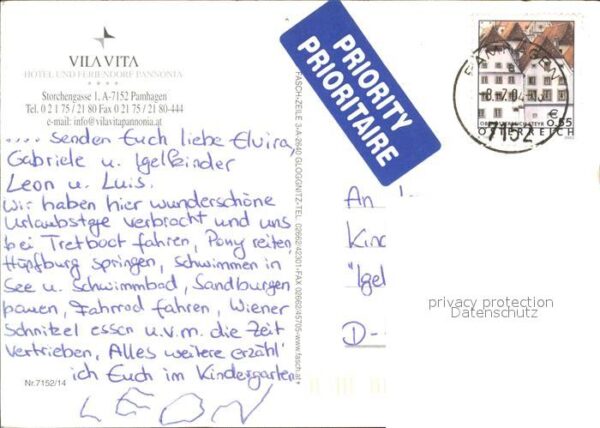 VILA VITA
HOTEL UND FERIENDORF PANNONIA
Storchengasse 1, A-7152 Pamhagen
Tel. 0 21 75 / 21 80 Fax 0 21 75 / 21 80-444
e-mail: info@vilavitapannonia.at
.... senden Euch liebe Elvira,
Gabriele u. Igelkinder
Leon u. Luis.
Wir haben hier wunderschöne
Urlaubstage verbracht und uns
bei Tretboot fahren, Pony reiten,
Hüpfburg springen, Schwimmen in
See u. Schwimmbad, Sandburgen
bauen, Fahrrad fahren, Wiener
Schnitzel essen u.v.m. die Zeit
vertrieben, Alles weitere erzähl'
ich Euch im Kindergarten
LEON
Nr.7152/14
FASCH-ZEILE 3-A-2640 GLOGGNITZ-TEL. 02662/42301-FAX 02662/45705-www.fasch.at
PRIORITY
PRIORITAIRE
PAMHAGEN
7152
€ 0,55
ÖSTERREICH
An
Kin
"Igel
D-
privacy protection
Datenschutz